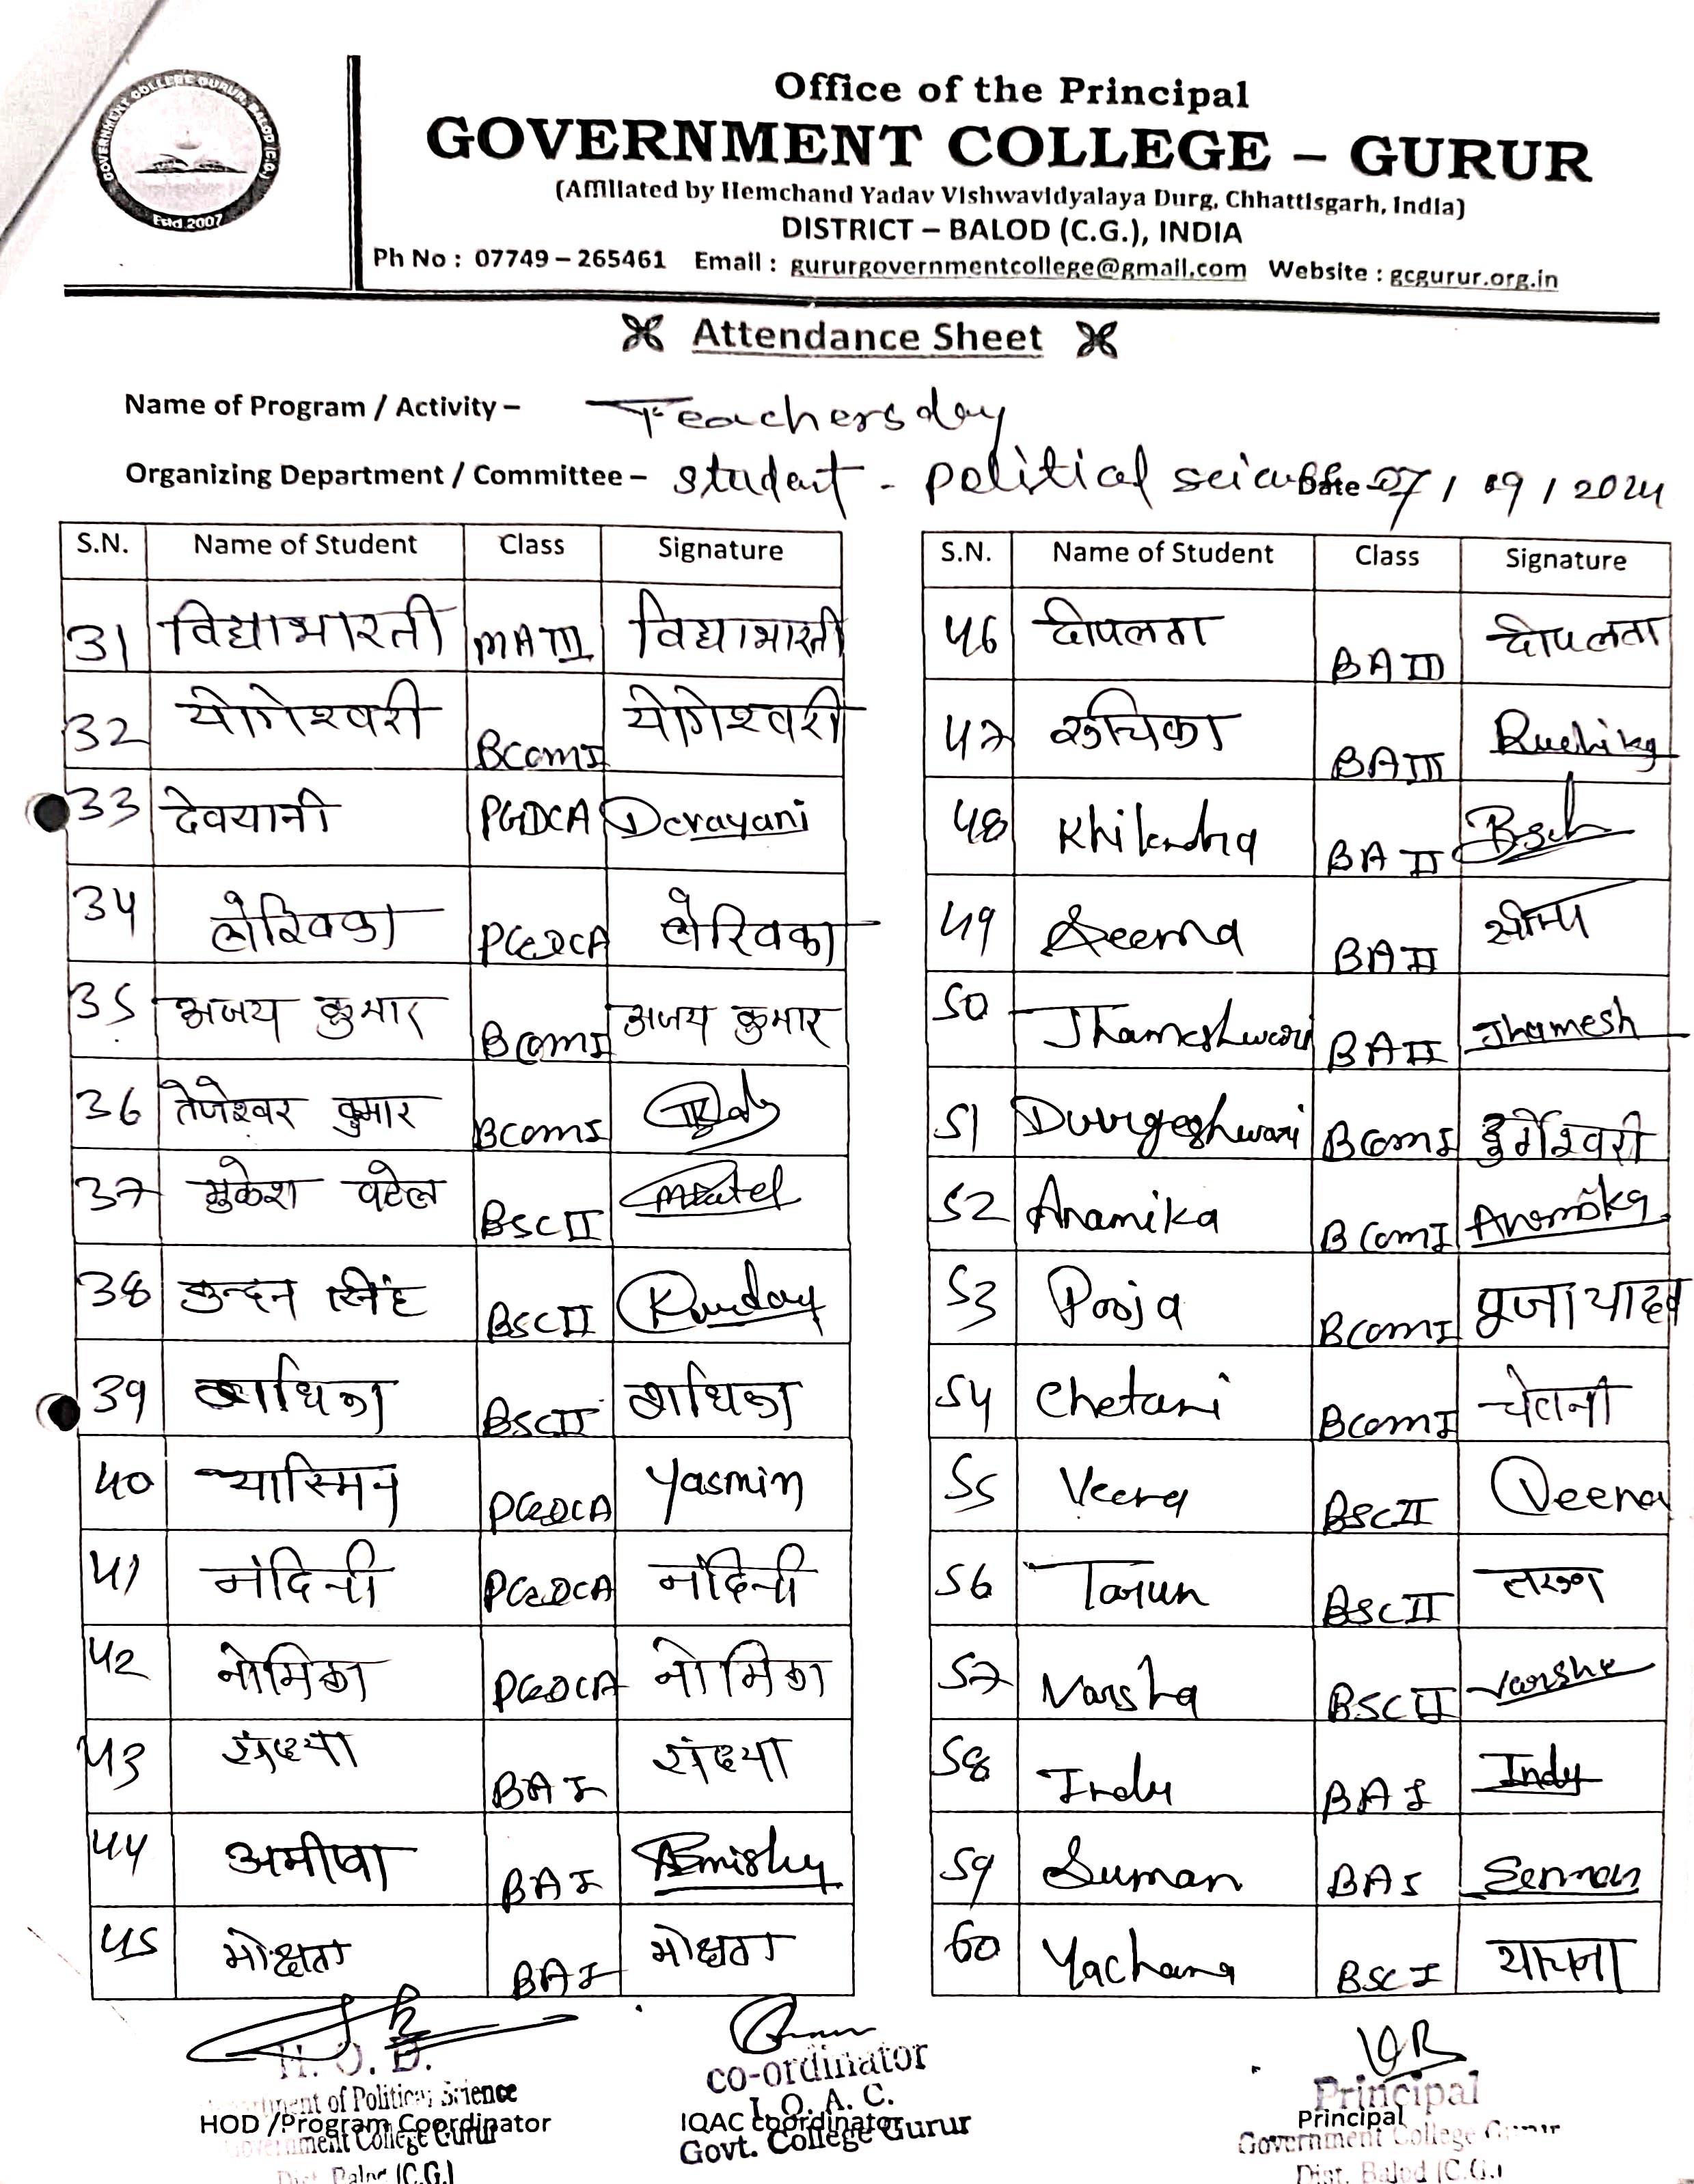 GOVERNMENT COLLEGE GURUR, BALOD (C.G.)
Estd.2007
Office of the Principal
GOVERNMENT COLLEGE – GURUR
(Affiliated by Hemchand Yadav Vishwavidyalaya Durg, Chhattisgarh, India)
DISTRICT – BALOD (C.G.), INDIA
Ph No : 07749 – 265461 Email : gururgovernmentcollege@gmail.com Website : gcgurur.org.in
Attendance Sheet
Name of Program / Activity – Teachers day
Organizing Department / Committee – student - political science Date 07/09/2024
S.N. Name of Student Class Signature
31 विद्याभारती MA III विद्याभारती
32 योगेश्वरी BCom I योगेश्वरी
33 देवयानी PGDCA Devayani
34 लेखिका PGDCA लेखिका
35 अजय कुमार BCom I अजय कुमार
36 तेजेश्वर कुमार BCom I
37 मुकेश पटेल BSC II
38 कुन्दन सिंह BSC II
39 BSC II
40 यास्मिन PGDCA Yasmin
41 नंदिनी PGDCA नंदिनी
42 नोमिका PGDCA नोमिका
43 संध्या BA I संध्या
44 अमीषा BA I
45 मोक्षता BA I मोक्षता
S.N. Name of Student Class Signature
46 दीपलता BA III दीपलता
47 रुचिका BA III Ruchika
48 Khilendra BA II
49 Seema BA II सीमा
50 Jhameshwari BA II Jhamesh
51 Durgeshwari BCom I दुर्गेश्वरी
52 Anamika BCom I Anamika
53 Pooja BCom I पूजा यादव
54 Chetani BCom I चेतनी
55 Veena BSC II Veena
56 Tarun BSC II तरुण
57 Varsha BSC II Varsha
58 Indu BA I Indu
59 Suman BA I Suman
60 Yachana BSC I याचना
H. O. D.
Department of Political Science
HOD /Program Coordinator
Government College Gurur
Dist. Balod (C.G.)
co-ordinator
I. Q. A. C.
IQAC coordinator
Govt. College Gurur
Principal
Principal
Government College Gurur
Dist. Balod (C.G.)